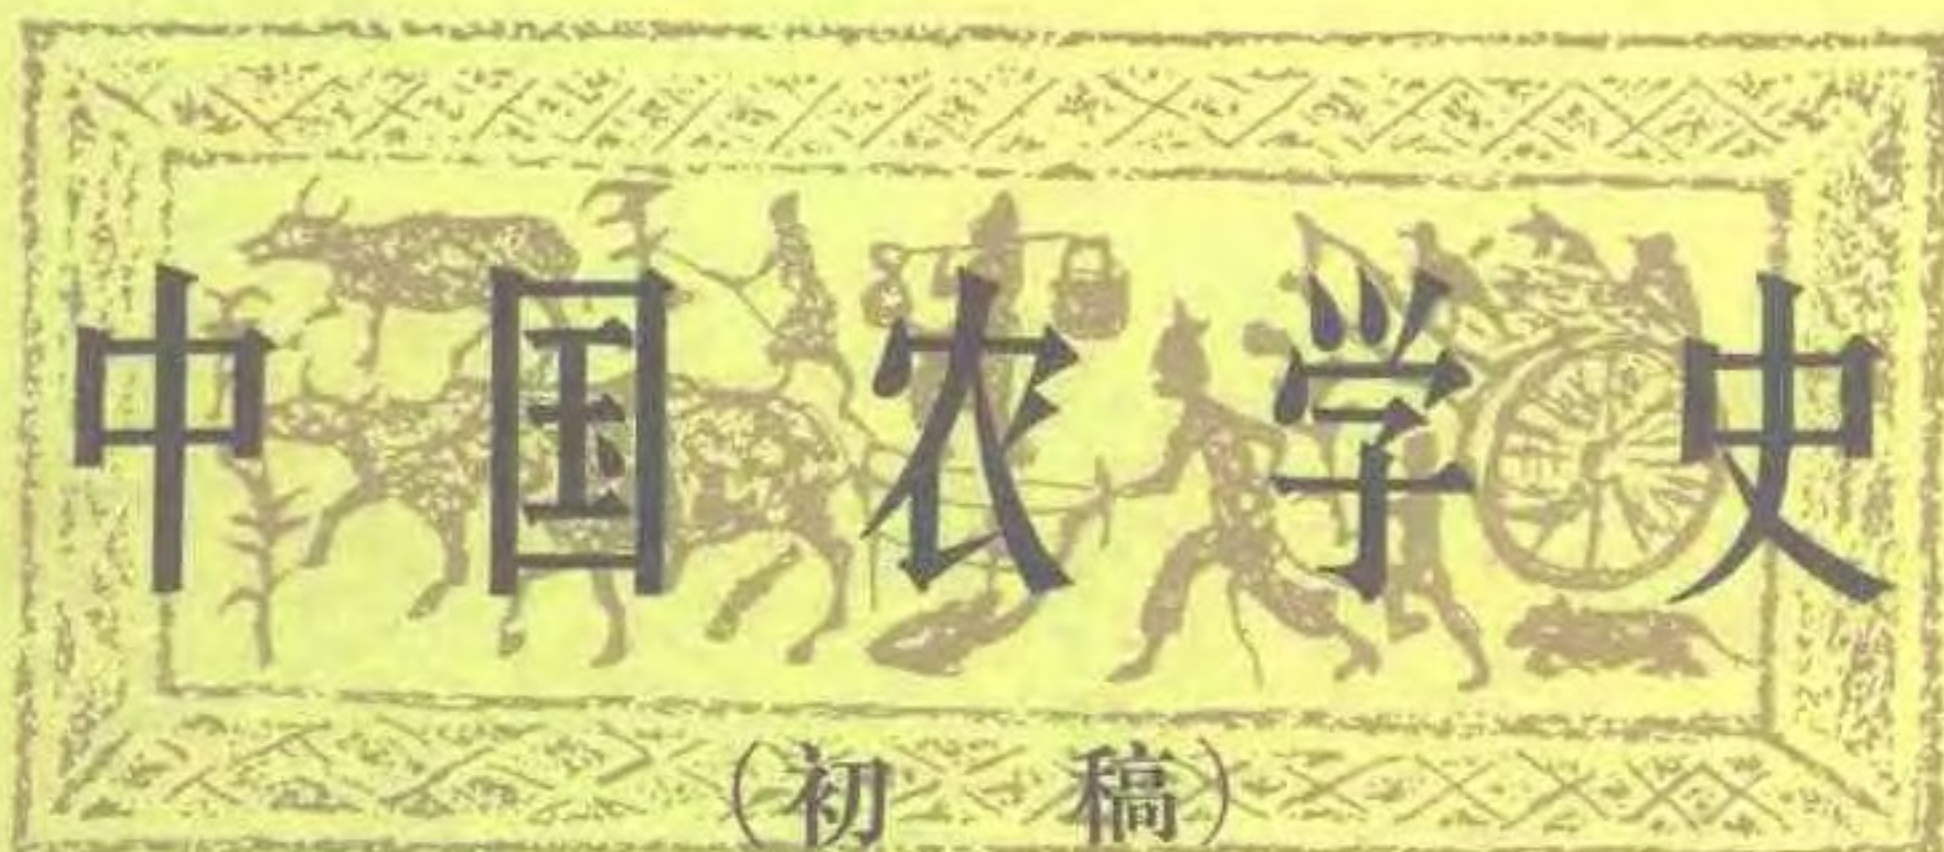 中国农学史
（初稿）